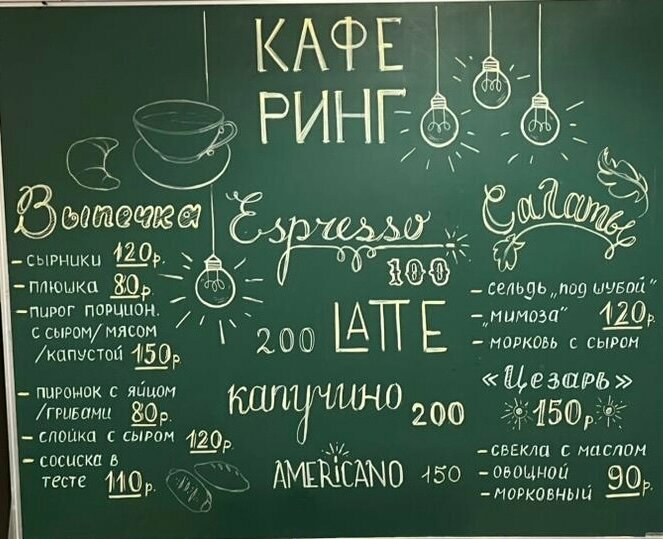 КАФЕ
РИНГ
Выпечка
- сырники 120р.
- плюшка 80р.
- пирог порцион.
с сыром/мясом
/капустой 150р
- пиронок с яйцом
/грибами 80р.
- слойка с сыром 120р.
- сосиска в
тесте 110р.
Espresso
100
200 LATTE
капучино 200
AMERICANO 150
Салаты
- сельдь „под шубой"
- „мимоза" 120р.
- морковь с сыром
«Цезарь»
150р
- свекла с маслом
- овощной 90р.
- морковный